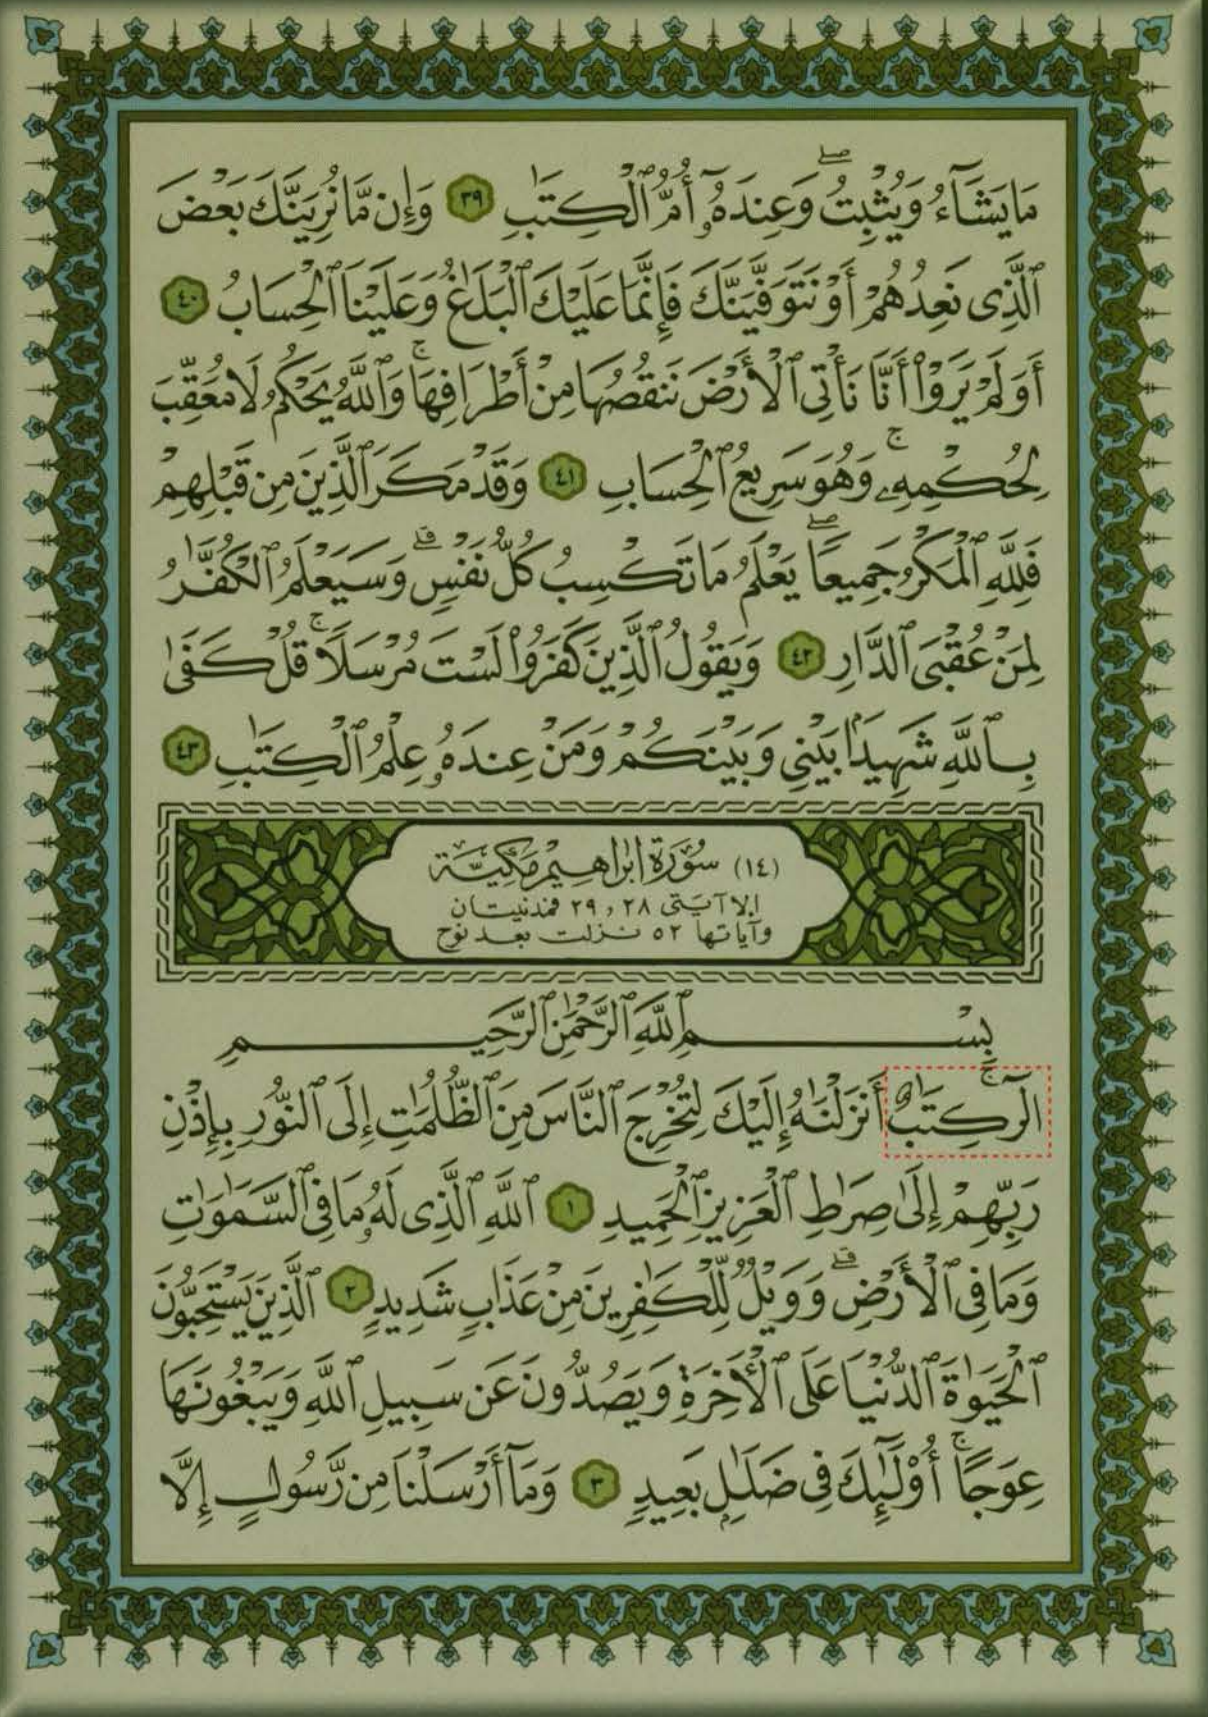 مَا يَشَآءُ وَيُثْبِتُ ۖ وَعِندَهُۥٓ أُمُّ ٱلْكِتَٰبِ ٣٩ وَإِن مَّا نُرِيَنَّكَ بَعْضَ
ٱلَّذِى نَعِدُهُمْ أَوْ نَتَوَفَّيَنَّكَ فَإِنَّمَا عَلَيْكَ ٱلْبَلَٰغُ وَعَلَيْنَا ٱلْحِسَابُ ٤٠
أَوَلَمْ يَرَوْا۟ أَنَّا نَأْتِى ٱلْأَرْضَ نَنقُصُهَا مِنْ أَطْرَافِهَا ۚ وَٱللَّهُ يَحْكُمُ لَا مُعَقِّبَ
لِحُكْمِهِۦ ۚ وَهُوَ سَرِيعُ ٱلْحِسَابِ ٤١ وَقَدْ مَكَرَ ٱلَّذِينَ مِن قَبْلِهِمْ
فَلِلَّهِ ٱلْمَكْرُ جَمِيعًا ۖ يَعْلَمُ مَا تَكْسِبُ كُلُّ نَفْسٍ ۗ وَسَيَعْلَمُ ٱلْكُفَّٰرُ
لِمَنْ عُقْبَى ٱلدَّارِ ٤٢ وَيَقُولُ ٱلَّذِينَ كَفَرُوا۟ لَسْتَ مُرْسَلًا ۚ قُلْ كَفَىٰ
بِٱللَّهِ شَهِيدًۢا بَيْنِى وَبَيْنَكُمْ وَمَنْ عِندَهُۥ عِلْمُ ٱلْكِتَٰبِ ٤٣
(١٤) سُورَة ابراهيم مَكيَّة
الا آيتى ٢٨ و ٢٩ فمدنيتان
وآياتها ٥٢ نزلت بعد نوح
بِسْمِ ٱللَّهِ ٱلرَّحْمَٰنِ ٱلرَّحِيمِ
الٓر ۚ كِتَٰبٌ أَنزَلْنَٰهُ إِلَيْكَ لِتُخْرِجَ ٱلنَّاسَ مِنَ ٱلظُّلُمَٰتِ إِلَى ٱلنُّورِ بِإِذْنِ
رَبِّهِمْ إِلَىٰ صِرَٰطِ ٱلْعَزِيزِ ٱلْحَمِيدِ ١ ٱللَّهِ ٱلَّذِى لَهُۥ مَا فِى ٱلسَّمَٰوَٰتِ
وَمَا فِى ٱلْأَرْضِ ۗ وَوَيْلٌ لِّلْكَٰفِرِينَ مِنْ عَذَابٍ شَدِيدٍ ٢ ٱلَّذِينَ يَسْتَحِبُّونَ
ٱلْحَيَوٰةَ ٱلدُّنْيَا عَلَى ٱلْأَخِرَةِ وَيَصُدُّونَ عَن سَبِيلِ ٱللَّهِ وَيَبْغُونَهَا
عِوَجًا ۚ أُو۟لَٰٓئِكَ فِى ضَلَٰلٍۭ بَعِيدٍ ٣ وَمَآ أَرْسَلْنَا مِن رَّسُولٍ إِلَّا